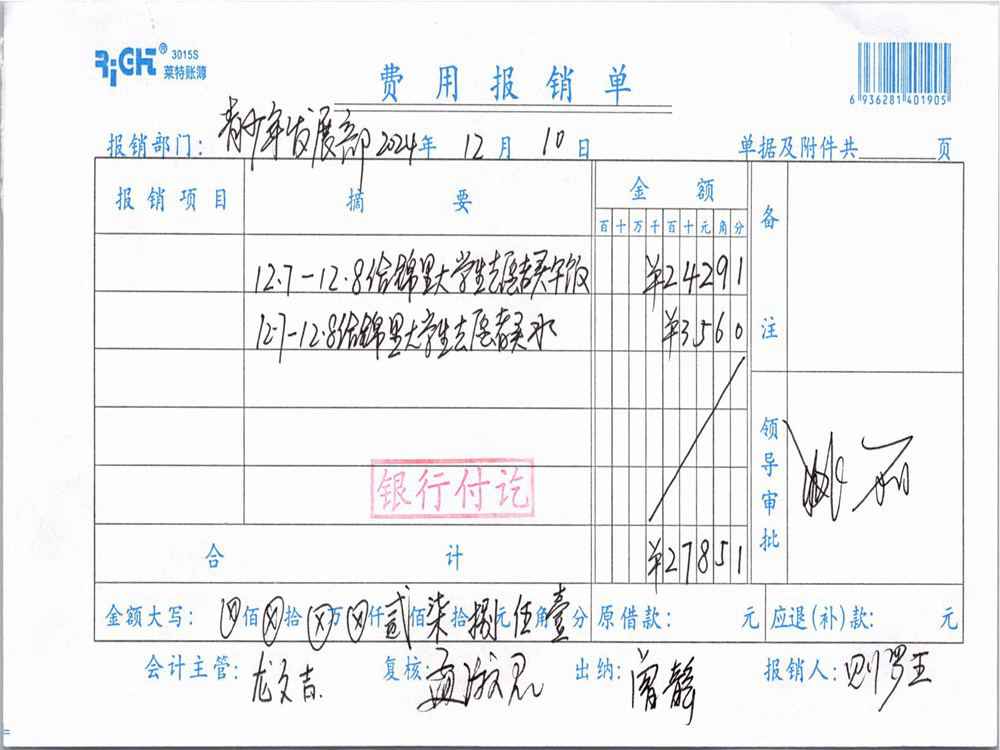 RiCHT® 3015S
莱特账簿
费用报销单
6 936281 401905
报销部门: 青少年发展部 2024年 12月 10日 单据及附件共 页
报销项目 摘要 金额 备注
百十万千百十元角分
12.7-12.8给锦里大学生志愿者买午饭 ¥24291
12.7-12.8给锦里大学生志愿者买水 ¥3560
领导审批
银行付讫
合计 ¥27851
金额大写: ⊗佰⊗拾⊗万⊗仟贰佰柒拾捌元伍角壹分 原借款: 元 应退(补)款: 元
会计主管: 龙文吉 复核: 出纳: 曾静 报销人: